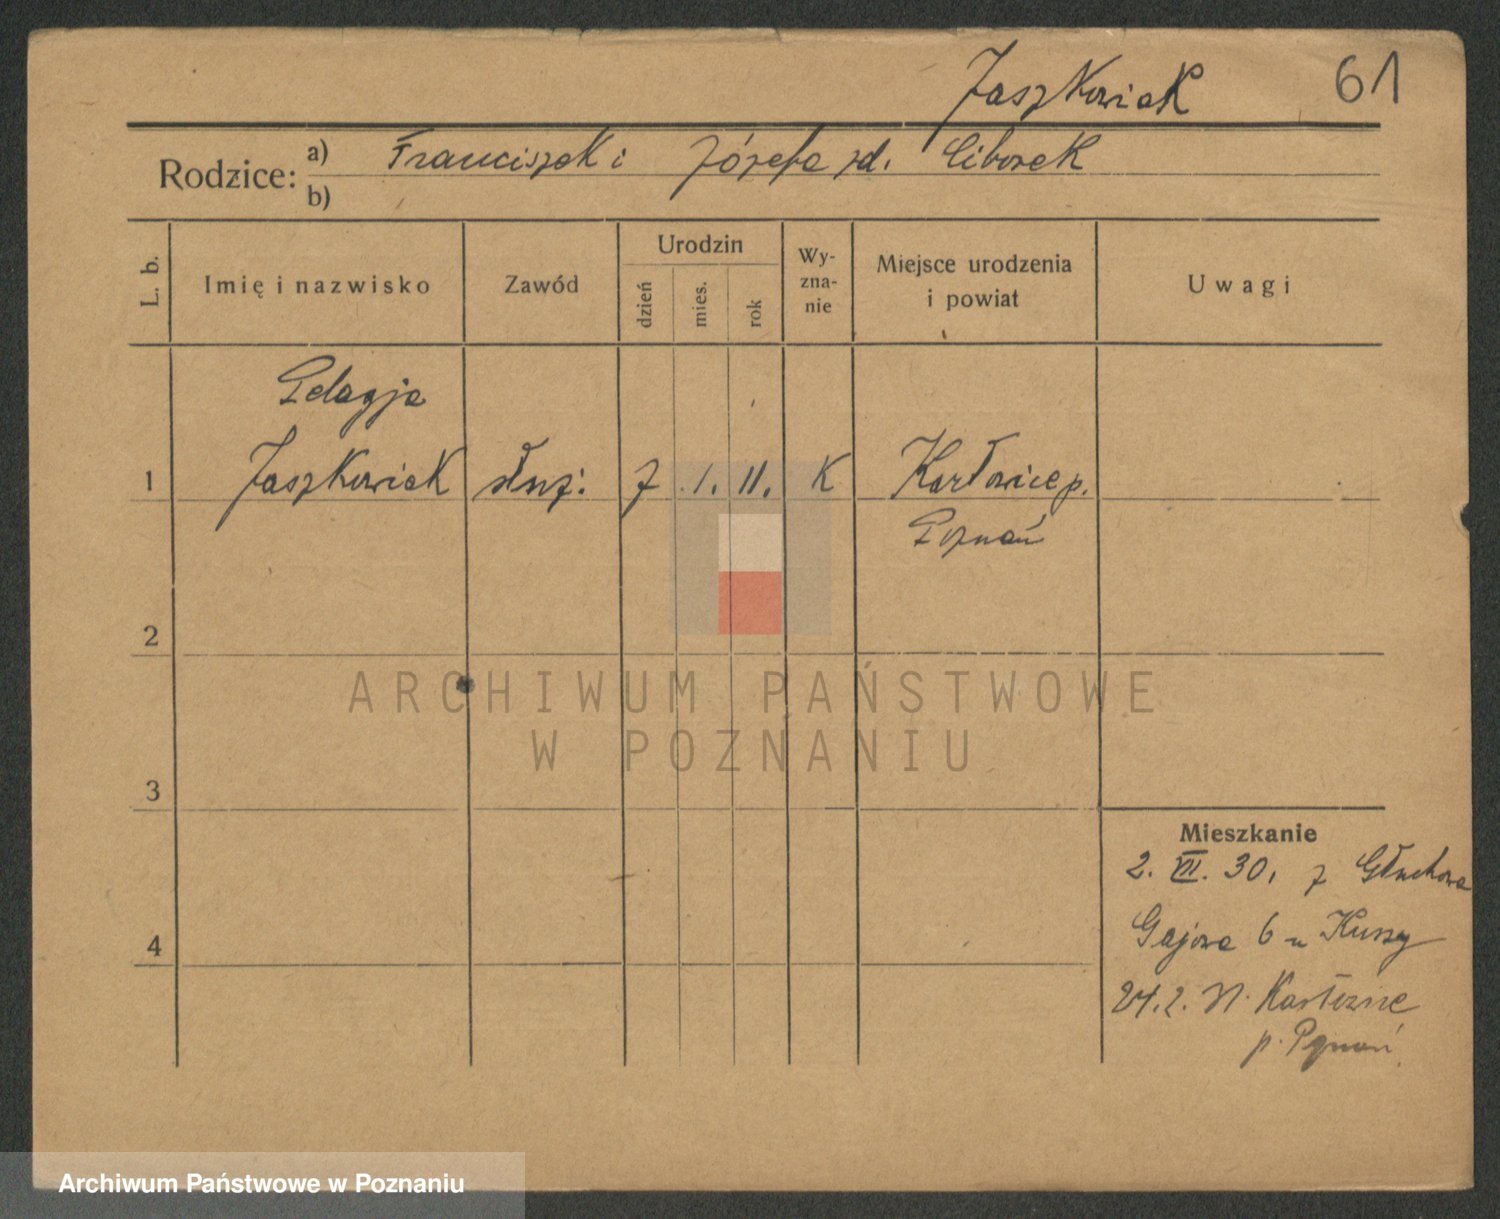 Jaszkowiak 61
Rodzice: a) Franciszek i Józefa zd. Ciborek
b)
L. b. Imię i nazwisko Zawód Urodzin dzień mies. rok Wy-zna-nie Miejsce urodzenia i powiat Uwagi
Pelagja
1 Jaszkowiak służ: 7 .1. 11. K Karłowice p.
Poznań
2
ARCHIWUM PAŃSTWOWE
W POZNANIU
3
Mieszkanie
2. VII. 30, z Głuchowa
4 Gajowa 6 u
21.2. Karłowice
p. Poznań
Archiwum Państwowe w Poznaniu